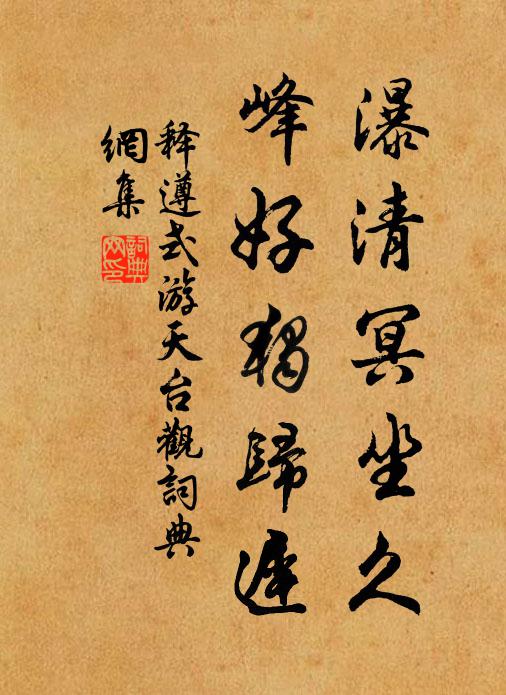 瀑清冥坐久
峰好獨歸遲
释遵式游天台觀詞典
網集
詞典網印